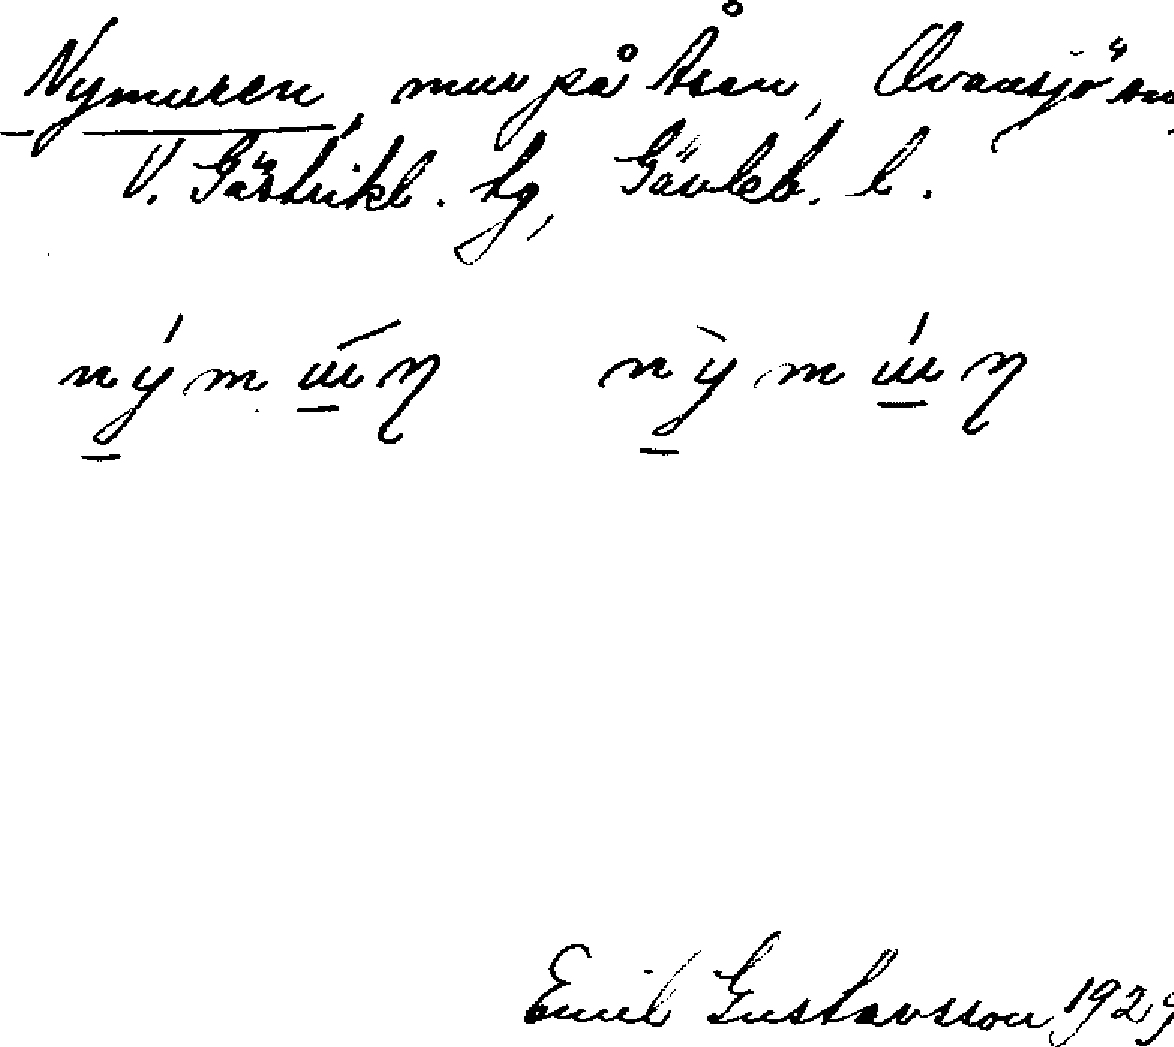 Nymuren, mur på Åsen, Ovansjö sn,
V. Gästrikl. tg, Gävleb. l.
Emil Gustavsson 1929